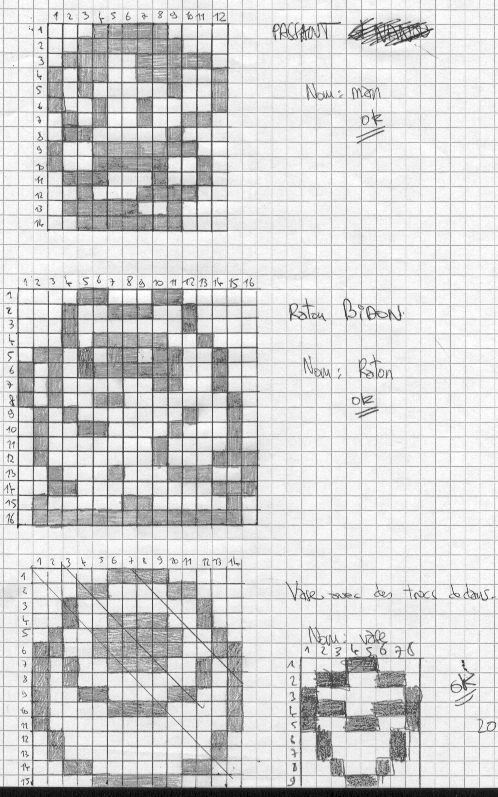 1 2 3 4 5 6 7 8 9 10 11 12
1
2
3
4
5
6
7
8
9
10
11
12
13
14
PASSANT
Nom: man
ok
1 2 3 4 5 6 7 8 9 10 11 12 13 14 15 16
1
2
3
4
5
6
7
8
9
10
11
12
13
14
15
16
Raton BiDON
Nom: Raton
ok
1 2 3 4 5 6 7 8 9 10 11 12 13 14
1
2
3
4
5
6
7
8
9
10
11
12
13
14
15
Vase avec des trucs dedans.
Nom: vase
1 2 3 4 5 6 7 8
1
2
3
4
5
6
7
8
9
ok
20